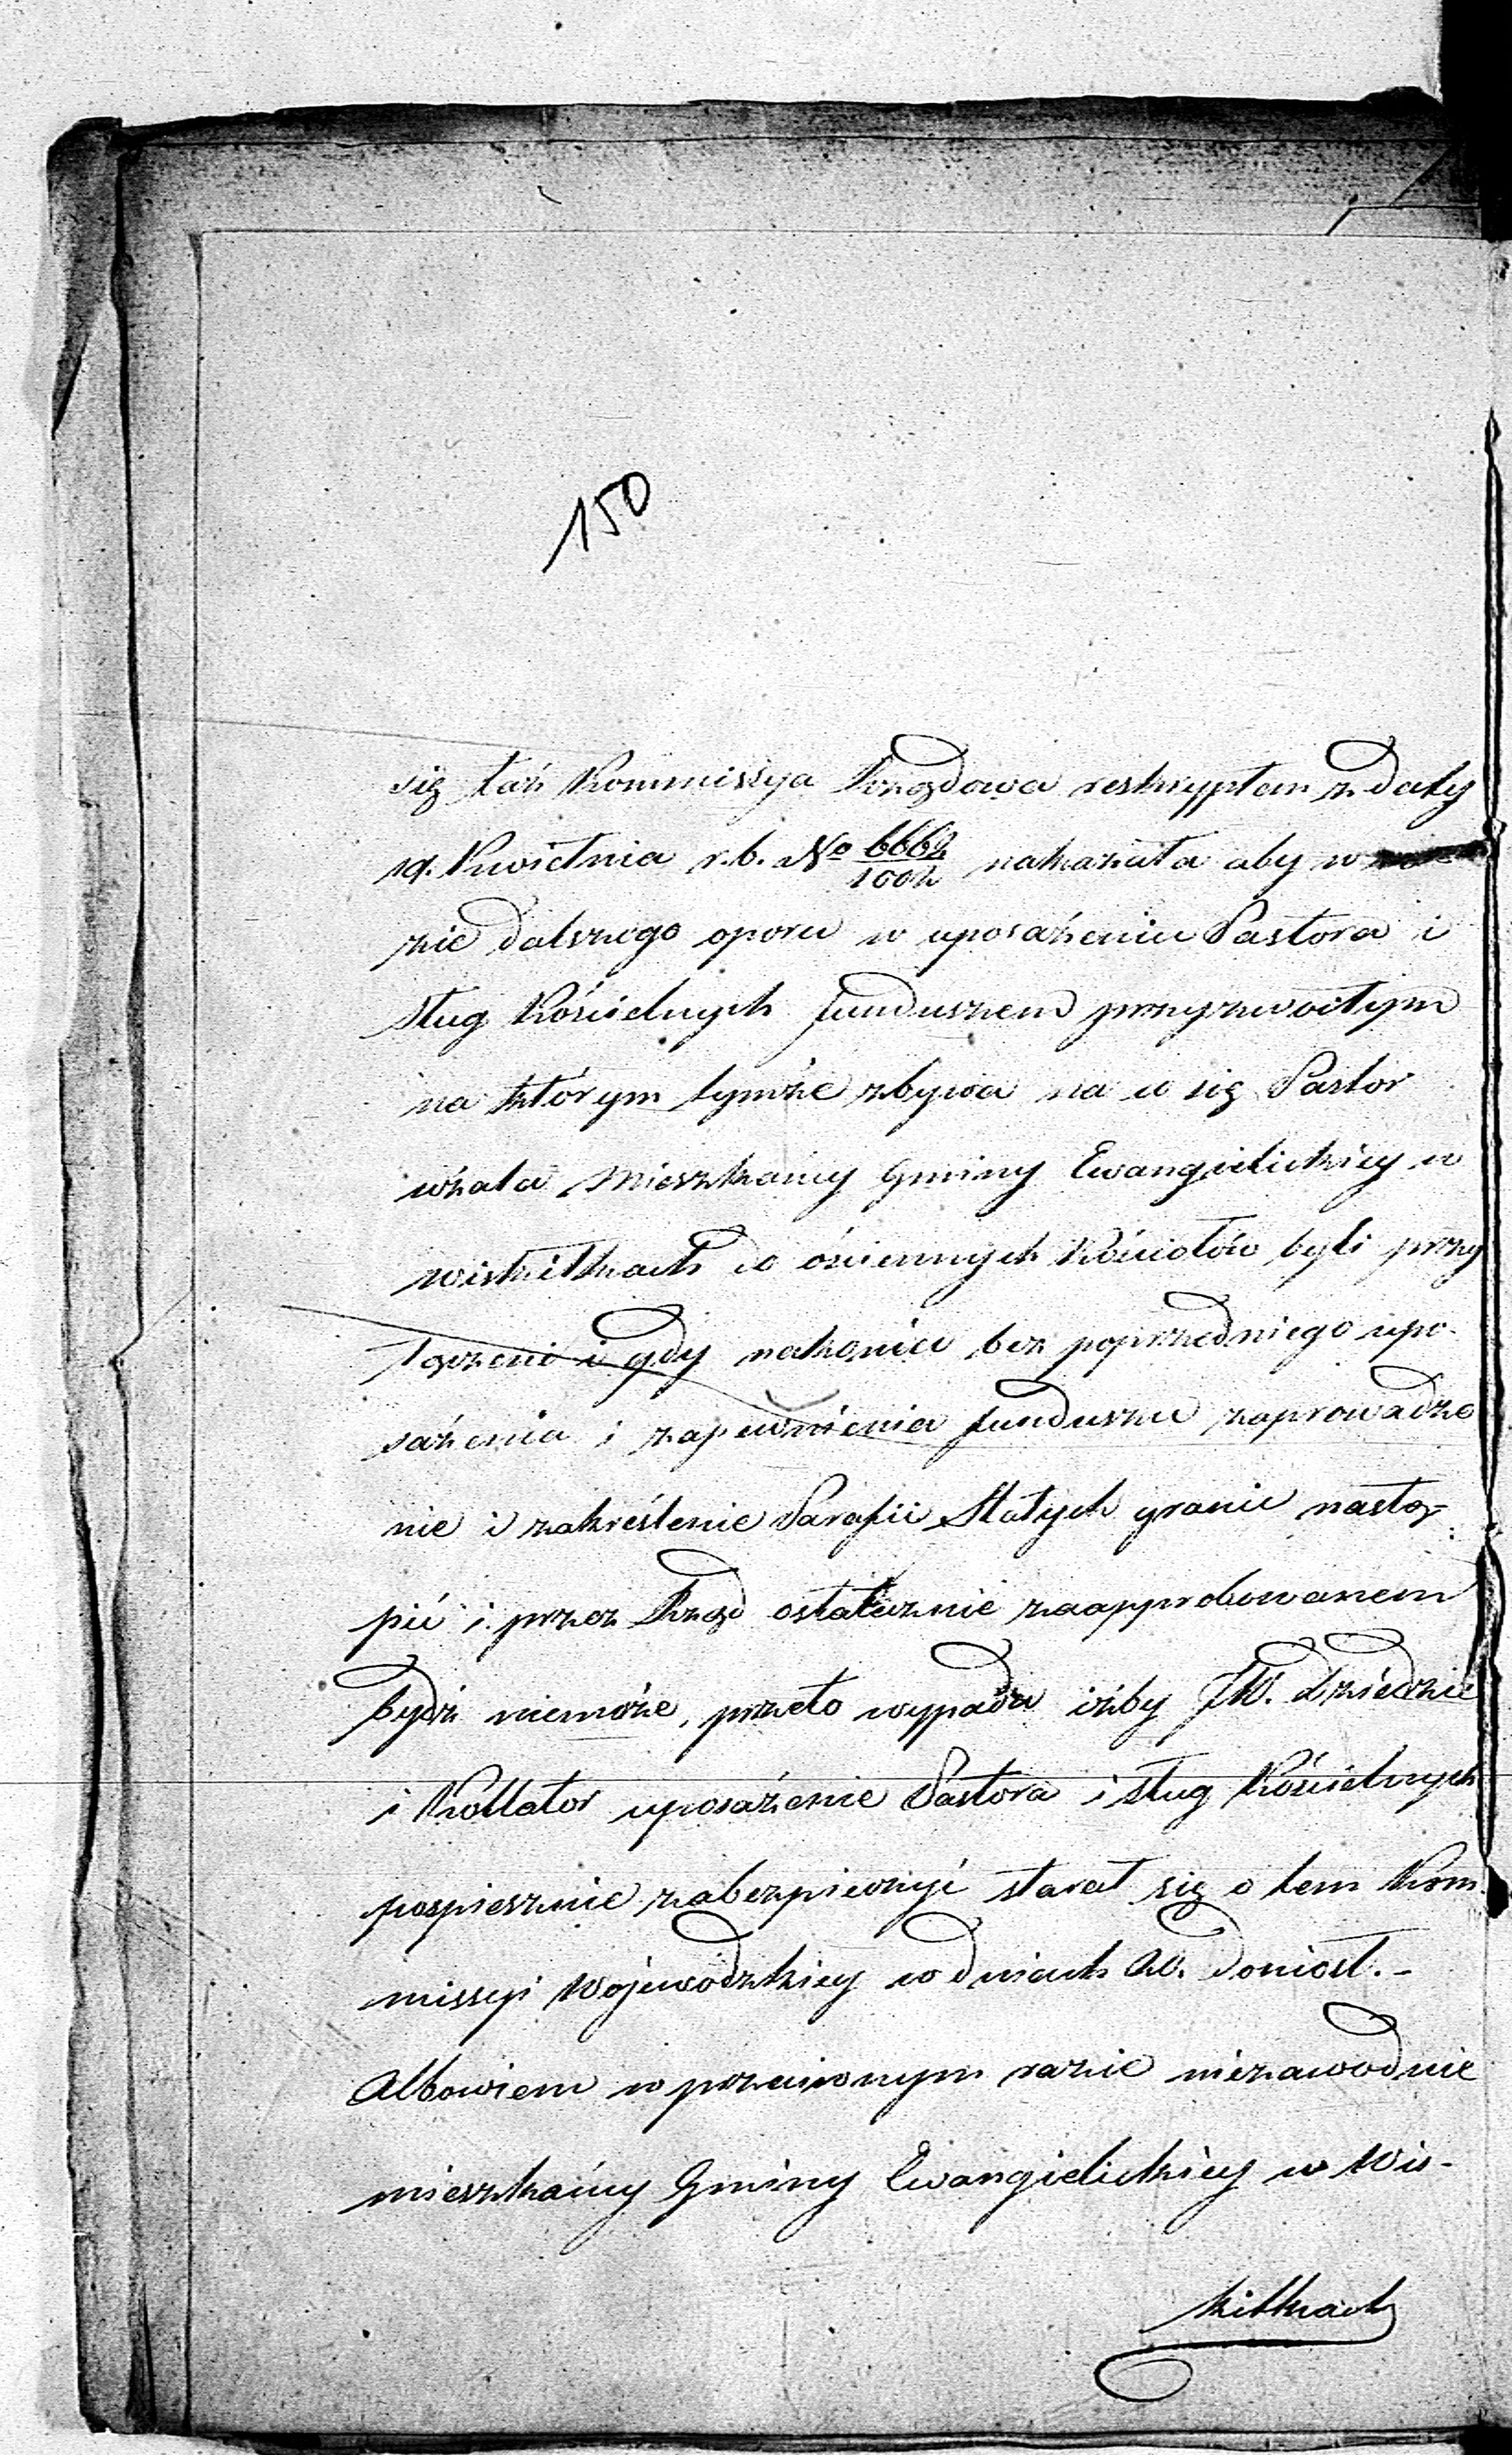 150
się taż Kommissya Rządowa reskryptem z daty
19. Kwietnia r.b. No 6662/1002 nakazała aby w
zie dalszego oporu w uposażeniu Pastora i
sług Kościelnych funduszem przyzwoitym
na którym tymże zbywa na się Pastor
Mieszkańcy Gminy Ewangielickiey w
wiskitkach do ościennych Kościołów byli przy
łączeni i gdy nakoniec bez poprzedniego upo-
sażenia i zapewnienia funduszu zaprowadze
nie i zakreślenie Parafii Stałych granic nastą-
pić i przez Rząd ostatecznie zaapprobowanem
bydź niemoże, przeto wypada iżby JW. Dziedzic
i Kollator uposażenie Pastora i sług Kościelnych
pospiesznie zabezpieczyć starał się o tem Kom
missyi Wojewodzkiey w dniach doniosł. -
Albowiem w przeciwnym razie niezawodnie
mieszkańcy Gminy Ewangielickiey w Wis-
kitkach